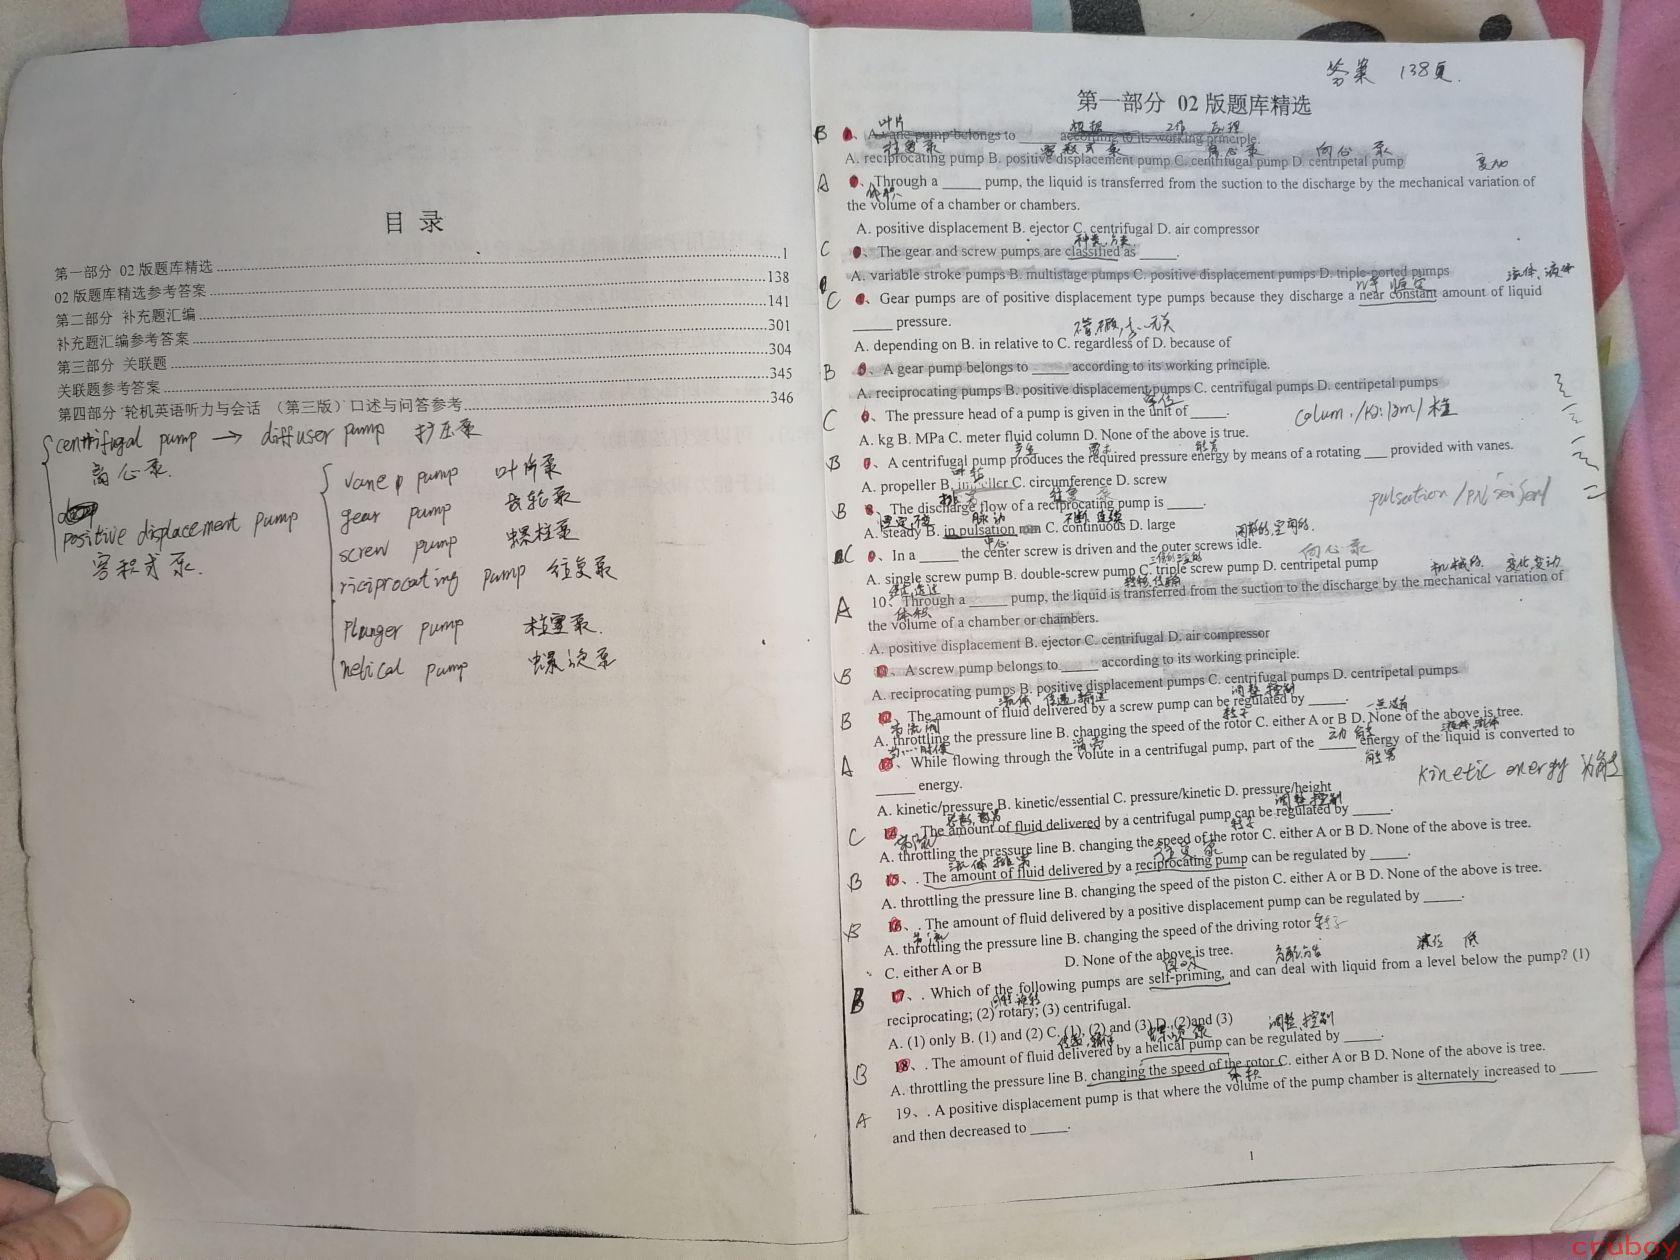 目 录
第一部分 02 版题库精选 1
02 版题库精选参考答案 138
第二部分 补充题汇编 141
补充题汇编参考答案 301
第三部分 关联题 304
关联题参考答案 345
第四部分 轮机英语听力与会话 （第三版）口述与问答参考 346
centrifugal pump → diffuser pump 扩压泵
离心泵.
positive displacement pump
容积式泵.
vane pump 叶片泵
gear pump 齿轮泵
screw pump 螺柱泵
riciprocating pump 往复泵
plunger pump 柱塞泵.
helical pump 螺旋泵
答案 138页.
第一部分 02 版题库精选
叶片 根据 工作 原理
B 、A vane pump belongs to ______ according to its working principle.
柱塞泵 容积式泵 离心泵 向心泵
A. reciprocating pump B. positive displacement pump C. centrifugal pump D. centripetal pump
变动
A 、Through a _____ pump, the liquid is transferred from the suction to the discharge by the mechanical variation of
体积
the volume of a chamber or chambers.
A. positive displacement B. ejector C. centrifugal D. air compressor
种类,分类
C 、The gear and screw pumps are classified as _____.
A. variable stroke pumps B. multistage pumps C. positive displacement pumps D. triple-ported pumps
恒定 流体、液体
C 、Gear pumps are of positive displacement type pumps because they discharge a near constant amount of liquid
_____ pressure.
不管,不顾,与…无关
A. depending on B. in relative to C. regardless of D. because of
B 、A gear pump belongs to _____ according to its working principle.
A. reciprocating pumps B. positive displacement pumps C. centrifugal pumps D. centripetal pumps
单位
C 、The pressure head of a pump is given in the unit of _____.
colum. 柱
A. kg B. MPa C. meter fluid column D. None of the above is true.
产生 需求 能量
B 、A centrifugal pump produces the required pressure energy by means of a rotating ___ provided with vanes.
叶轮
A. propeller B. impeller C. circumference D. screw
排量 往复泵
B 8、The discharge flow of a reciprocating pump is _____.
pulsation
恒定,不变 脉动 不断,连续
A. steady B. in pulsation C. continuous D. large
中心
C 、In a _____ the center screw is driven and the outer screws idle.
向心泵
A. single screw pump B. double-screw pump C. triple screw pump D. centripetal pump
机械的 变化,变动
A 10、Through a _____ pump, the liquid is transferred from the suction to the discharge by the mechanical variation of
体积
the volume of a chamber or chambers.
A. positive displacement B. ejector C. centrifugal D. air compressor
B 、A screw pump belongs to _____ according to its working principle.
A. reciprocating pumps B. positive displacement pumps C. centrifugal pumps D. centripetal pumps
流体 传递,输送 调整,控制
B 、The amount of fluid delivered by a screw pump can be regulated by _____.
转子
A. throttling the pressure line B. changing the speed of the rotor C. either A or B D. None of the above is tree.
A 13、While flowing through the volute in a centrifugal pump, part of the _____ energy of the liquid is converted to
_____ energy.
能量 kinetic energy 动能
A. kinetic/pressure B. kinetic/essential C. pressure/kinetic D. pressure/height
调整,控制
C 14、The amount of fluid delivered by a centrifugal pump can be regulated by _____.
节流 转子
A. throttling the pressure line B. changing the speed of the rotor C. either A or B D. None of the above is tree.
流体排量 往复泵
B 15、. The amount of fluid delivered by a reciprocating pump can be regulated by _____.
A. throttling the pressure line B. changing the speed of the piston C. either A or B D. None of the above is tree.
B 16、. The amount of fluid delivered by a positive displacement pump can be regulated by _____.
节流
A. throttling the pressure line B. changing the speed of the driving rotor 转子
C. either A or B D. None of the above is tree.
自吸 液位 低
B 17、. Which of the following pumps are self-priming, and can deal with liquid from a level below the pump? (1)
reciprocating; (2) rotary; (3) centrifugal.
A. (1) only B. (1) and (2) C. (1), (2) and (3) D. (2)and (3)
螺旋泵 调整,控制
B 18、. The amount of fluid delivered by a helical pump can be regulated by _____.
A. throttling the pressure line B. changing the speed of the rotor C. either A or B D. None of the above is tree.
体积
A 19、. A positive displacement pump is that where the volume of the pump chamber is alternately increased to _____
and then decreased to _____.
1
cruboy